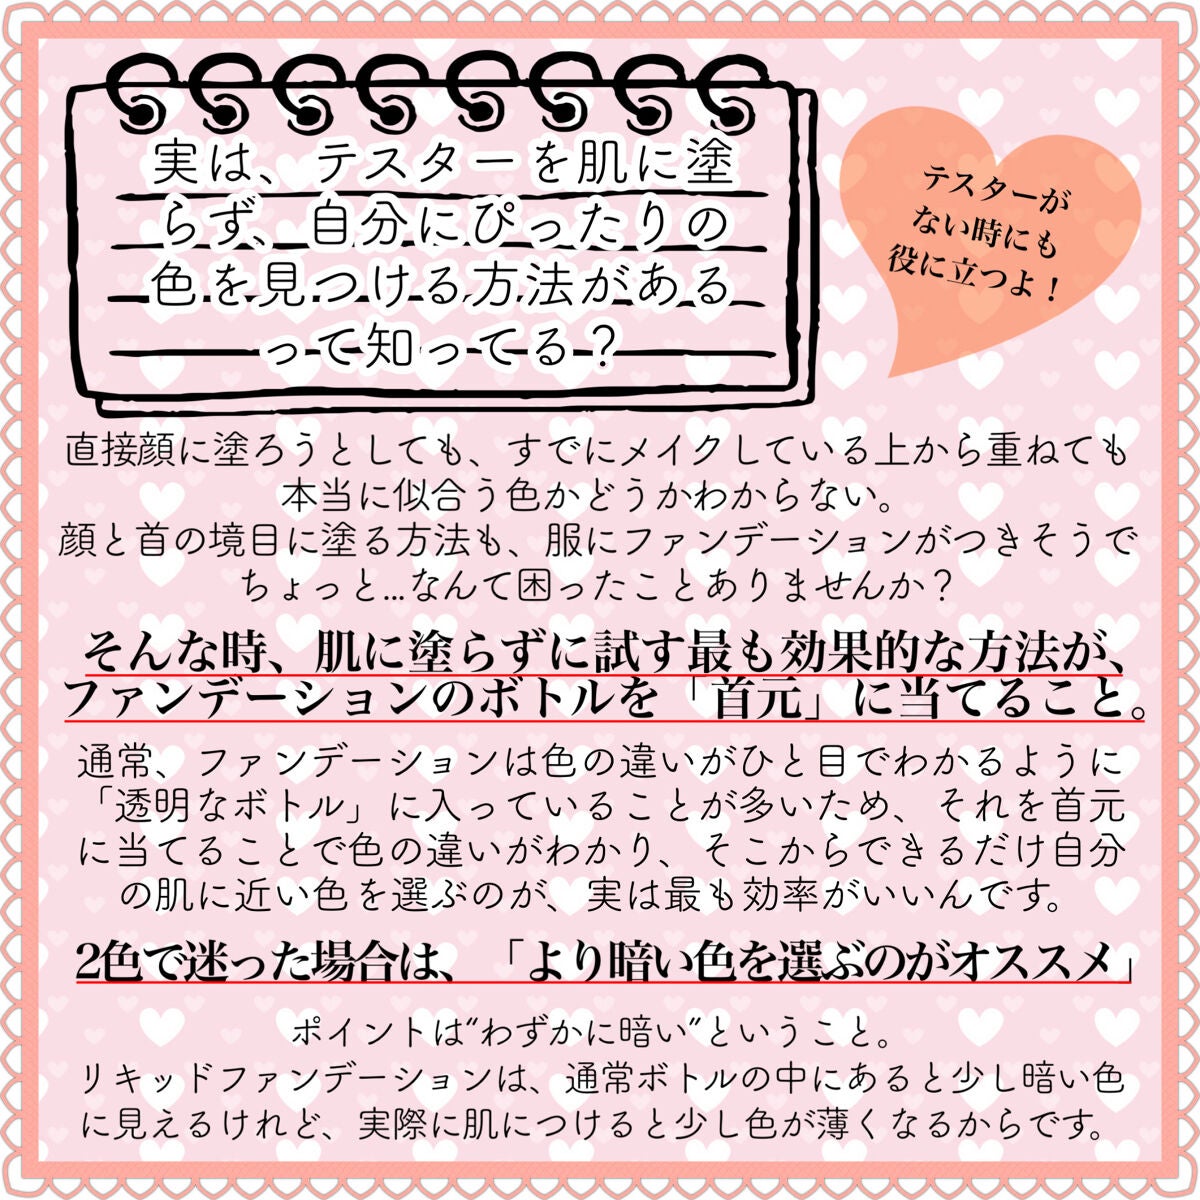 実は、テスターを肌に塗
らず、自分にぴったりの
色を見つける方法がある
って知ってる？
テスターが
ない時にも
役に立つよ！
直接顔に塗ろうとしても、すでにメイクしている上から重ねても
本当に似合う色かどうかわからない。
顔と首の境目に塗る方法も、服にファンデーションがつきそうで
ちょっと…なんて困ったことありませんか？
そんな時、肌に塗らずに試す最も効果的な方法が、
ファンデーションのボトルを「首元」に当てること。
通常、ファンデーションは色の違いがひと目でわかるように
「透明なボトル」に入っていることが多いため、それを首元
に当てることで色の違いがわかり、そこからできるだけ自分
の肌に近い色を選ぶのが、実は最も効率がいいんです。
2色で迷った場合は、「より暗い色を選ぶのがオススメ」
ポイントは“わずかに暗い”ということ。
リキッドファンデーションは、通常ボトルの中にあると少し暗い色
に見えるけれど、実際に肌につけると少し色が薄くなるからです。